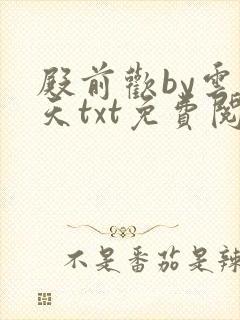 殿前歡by雲
天txt免費閱
不是番茄是辣